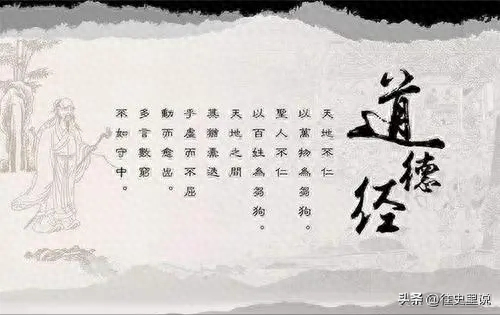 道德经
天地不仁
以萬物為芻狗。
聖人不仁
以百姓為芻狗。
天地之間
其猶橐
乎虛而不屈
動而愈出。
多言數窮
不如守中。
头条 @往史里说